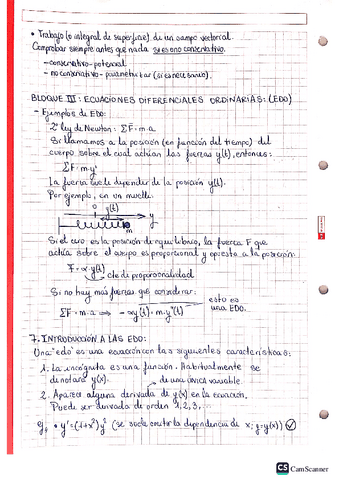 • Trabajo (o integral de superficie) de un campo vectorial.
Comprobar siempre antes que nada si es o no conservativo.
- conservativo → potencial
- no conservativo → parametrizar (si es necesario).
BLOQUE III: ECUACIONES DIFERENCIALES ORDINARIAS: (EDO)
- Ejemplos de EDO:
2ª ley de Newton: ΣF = m·a
Si llamamos a la posición (en función del tiempo) del
cuerpo sobre el cual actúan las fuerzas y(t), entonces:
ΣF = m·y''
La fuerza suele depender de la posición y(t).
Por ejemplo, en un muelle:
0 y(t)
y
m
Si el cero es la posición de equilibrio, la fuerza F que
actúa sobre el cuerpo es proporcional y opuesta a la posición
F = -α·y(t)
cte de proporcionalidad
Si no hay más fuerzas que considerar:
ΣF = m·a ⟹ -αy(t) = m·y''(t)
esto es
una EDO.
7. INTRODUCCIÓN A LAS EDO:
Una "edo" es una ecuación con las siguientes características:
1. La incógnita es una función. Habitualmente se
denotará y(x). de una única variable.
2. Aparece alguna derivada de y(x) en la ecuación.
Puede ser derivada de orden 1, 2, 3, ...
Ej • y' = (1+x²)y² (se suele omitir la dependencia de x: y = y(x))
CS CamScanner